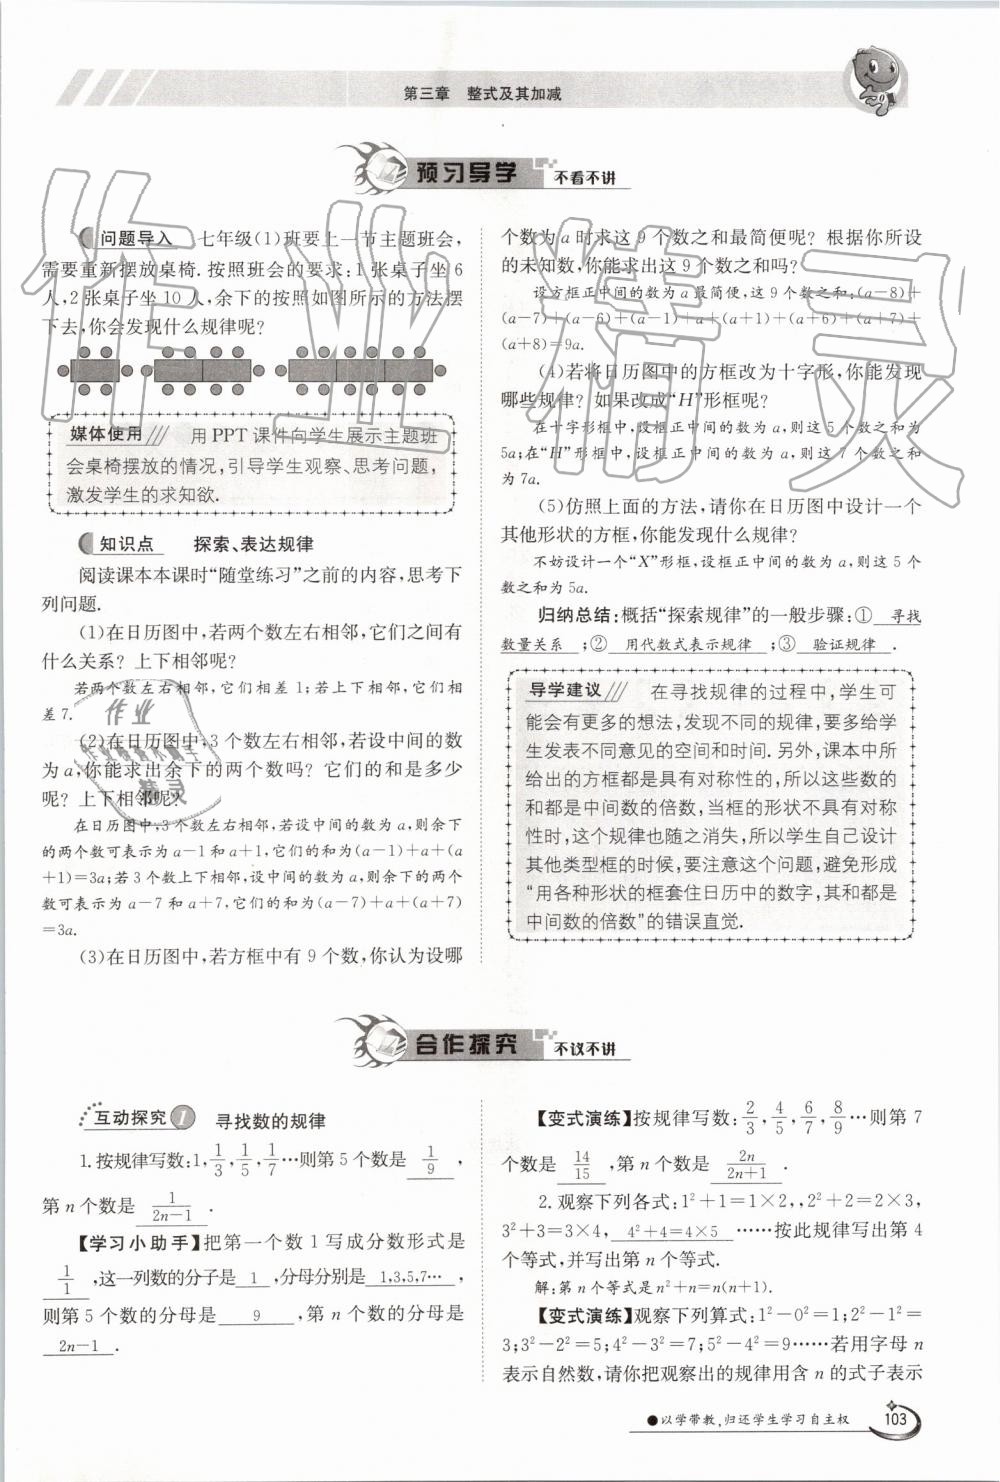 第三章 整式及其加减
预习导学 不看不讲
问题导入 七年级(1)班要上一节主题班会,
需要重新摆放桌椅.按照班会的要求:1张桌子坐6
人,2张桌子坐10人,余下的按照如图所示的方法摆
下去,你会发现什么规律呢?
媒体使用 用PPT课件向学生展示主题班
会桌椅摆放的情况,引导学生观察、思考问题,
激发学生的求知欲.
知识点 探索、表达规律
阅读课本本课时“随堂练习”之前的内容,思考下
列问题.
(1)在日历图中,若两个数左右相邻,它们之间有
什么关系? 上下相邻呢?
若两个数左右相邻,它们相差1;若上下相邻,它们相
差7.
(2)在日历图中,3个数左右相邻,若设中间的数
为a,你能求出余下的两个数吗? 它们的和是多少
呢? 上下相邻呢?
在日历图中,3个数左右相邻,若设中间的数为a,则余下
的两个数可表示为a-1和a+1,它们的和为(a-1)+a+(a
+1)=3a;若3个数上下相邻,设中间的数为a,则余下的两个
数可表示为a-7和a+7,它们的和为(a-7)+a+(a+7)
=3a.
(3)在日历图中,若方框中有9个数,你认为设哪
个数为a时求这9个数之和最简便呢? 根据你所设
的未知数,你能求出这9个数之和吗?
设方框正中间的数为a最简便,这9个数之和:(a-8)+
(a-7)+(a-6)+(a-1)+a+(a+1)+(a+6)+(a+7)+
(a+8)=9a.
(4)若将日历图中的方框改为十字形,你能发现
哪些规律? 如果改成“H”形框呢?
在十字形框中,设框正中间的数为a,则这5个数之和为
5a;在“H”形框中,设框正中间的数为a,则这7个数之和
为7a.
(5)仿照上面的方法,请你在日历图中设计一个
其他形状的方框,你能发现什么规律?
不妨设计一个“X”形框,设框正中间的数为a,则这5个
数之和为5a.
归纳总结:概括“探索规律”的一般步骤:① 寻找
数量关系 ;② 用代数式表示规律 ;③ 验证规律 .
导学建议 在寻找规律的过程中,学生可
能会有更多的想法,发现不同的规律,要多给学
生发表不同意见的空间和时间.另外,课本中所
给出的方框都是具有对称性的,所以这些数的
和都是中间数的倍数,当框的形状不具有对称
性时,这个规律也随之消失,所以学生自己设计
其他类型框的时候,要注意这个问题,避免形成
“用各种形状的框套住日历中的数字,其和都是
中间数的倍数”的错误直觉.
合作探究 不议不讲
互动探究1 寻找数的规律
1.按规律写数:1,1/3,1/5,1/7…则第5个数是 1/9 ,
第n个数是 1/(2n-1) .
【学习小助手】把第一个数1写成分数形式是
1/1 ,这一列数的分子是 1 ,分母分别是 1,3,5,7… ,
则第5个数的分母是 9 ,第n个数的分母是
2n-1 .
【变式演练】按规律写数:2/3,4/5,6/7,8/9…则第7
个数是 14/15 ,第n个数是 2n/(2n+1) .
2.观察下列各式:1²+1=1×2,,2²+2=2×3,
3²+3=3×4, 4²+4=4×5 ……按此规律写出第4
个等式,并写出第n个等式.
解:第n个等式是n²+n=n(n+1).
【变式演练】观察下列算式:1²-0²=1;2²-1²=
3;3²-2²=5;4²-3²=7;5²-4²=9……若用字母n
表示自然数,请你把观察出的规律用含n的式子表示
●以学带教,归还学生学习自主权
103
作业精灵
作业
精灵